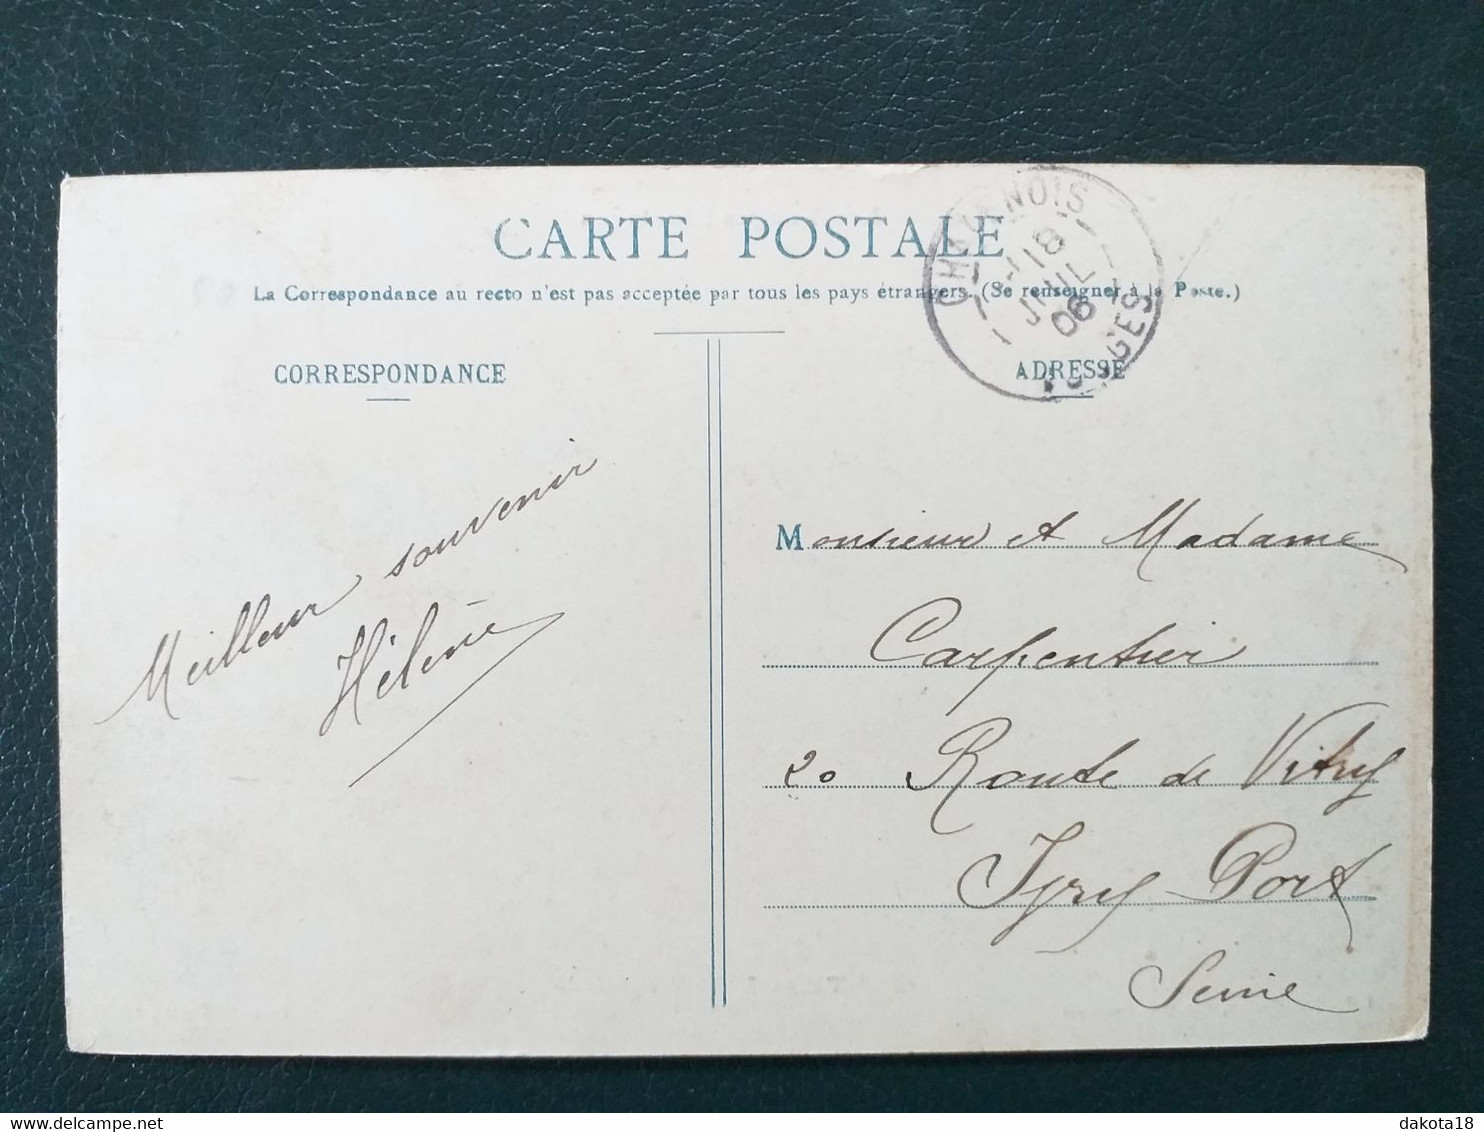 CARTE POSTALE
La Correspondance au recto n'est pas acceptée par tous les pays étrangers. (Se renseigner à la Poste.)
CORRESPONDANCE
ADRESSE
18
JUIL
06
Meilleur souvenir
Hélène
Monsieur et Madame
Carpentier
20 Route de Vitry
Ivry Port
Seine
delcampe.net
dakota18